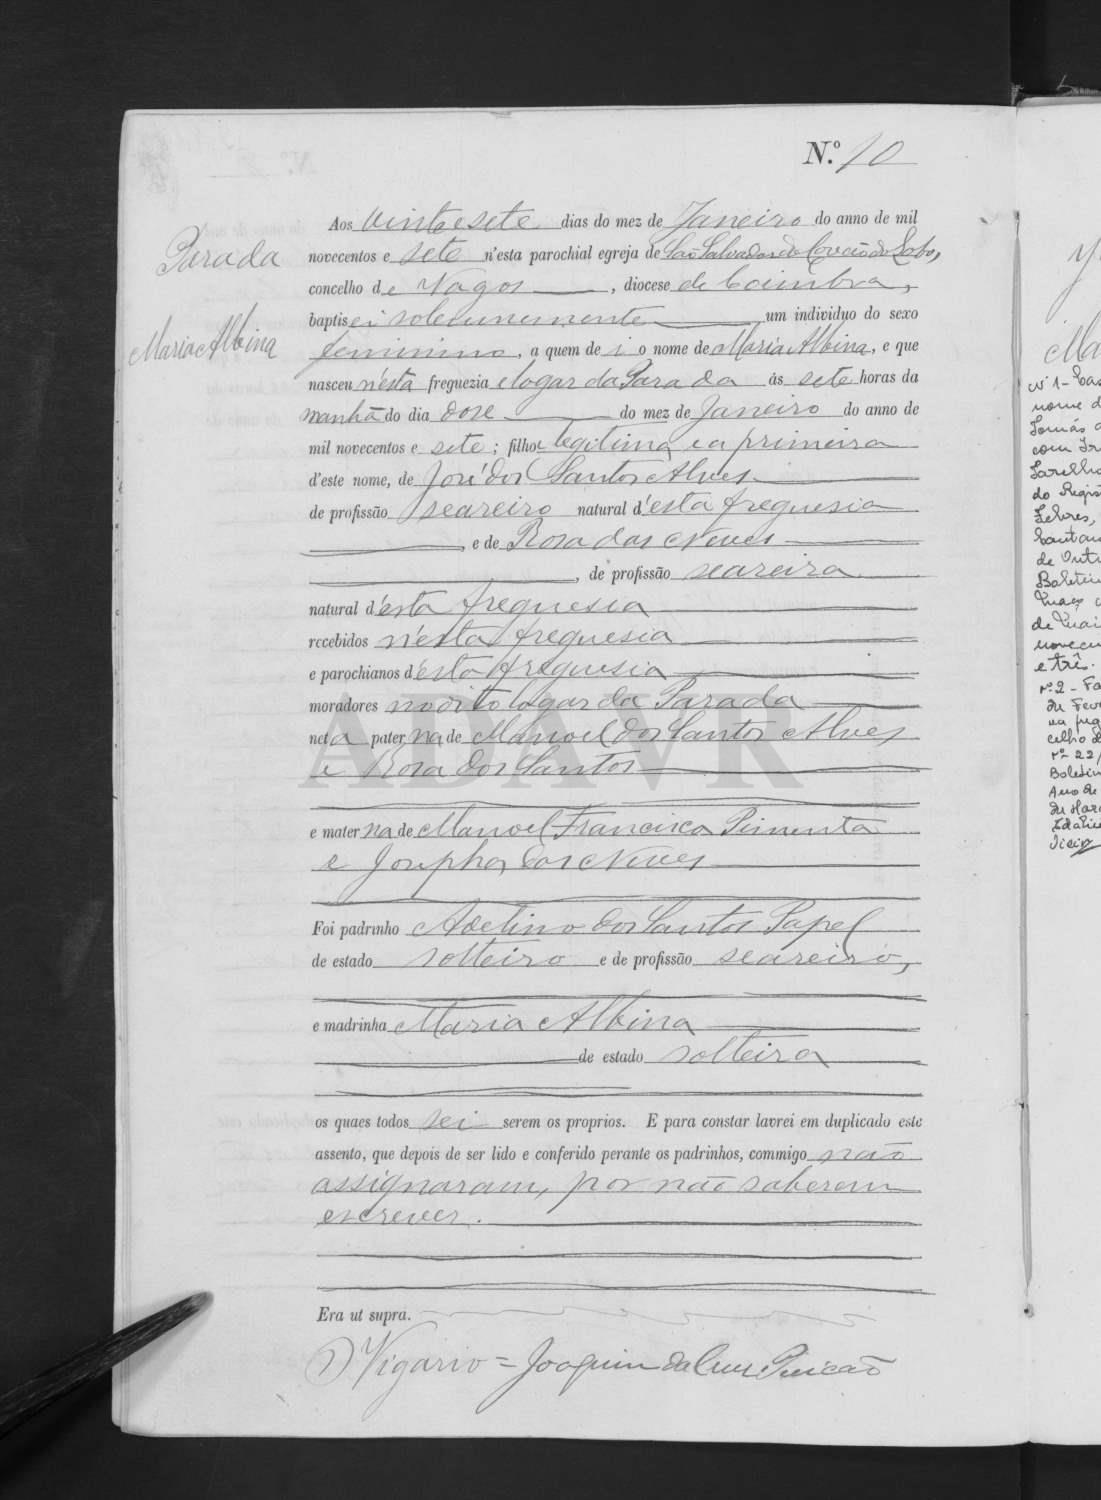 N.º 10
Aos vinte e sete dias do mez de Janeiro do anno de mil
Parada
novecentos e sete n'esta parochial egreja de São Salvador do Covão do Lobo,
concelho de Vagos, diocese de Coimbra,
baptisei solemnemente um individuo do sexo
Maria Albina
feminino, a quem dei o nome de Maria Albina, e que
nasceu n'esta freguezia e logar da Parada ás sete horas da
manhã do dia dose do mez de Janeiro do anno de
mil novecentos e sete; filha legitima e a primeira
d'este nome, de José dos Santos Alves
de profissão seareiro natural d'esta freguesia
e de Rosa das Neves
, de profissão seareira
natural d'esta freguesia
recebidos n'esta freguesia
e parochianos d'esta freguesia
moradores no dito logar da Parada
neta paterna de Manoel dos Santos Alves
e Rosa dos Santos
ADAVR
e materna de Manoel Francisco Pimenta
e Josepha das Neves
Foi padrinho Adelino dos Santos Papel
de estado solteiro e de profissão seareiro,
e madrinha Maria Albina
de estado solteira
os quaes todos sei serem os proprios. E para constar lavrei em duplicado este
assento, que depois de ser lido e conferido perante os padrinhos, commigo não
assignaram, por não saberem
escrever.
Era ut supra.
O Vigario = Joaquim da Cruz
Ma
nº 1 - Cas
nome d
com
do Regis
de Outu
Boletim
de Mai
novecen
e três.
nº 2 - Fa
de Feve
na freg
celho d
nº 22/
Boletim
Ano de
de Mar